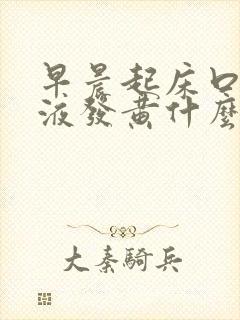 早晨起床口
液發黃什麼
大秦騎兵